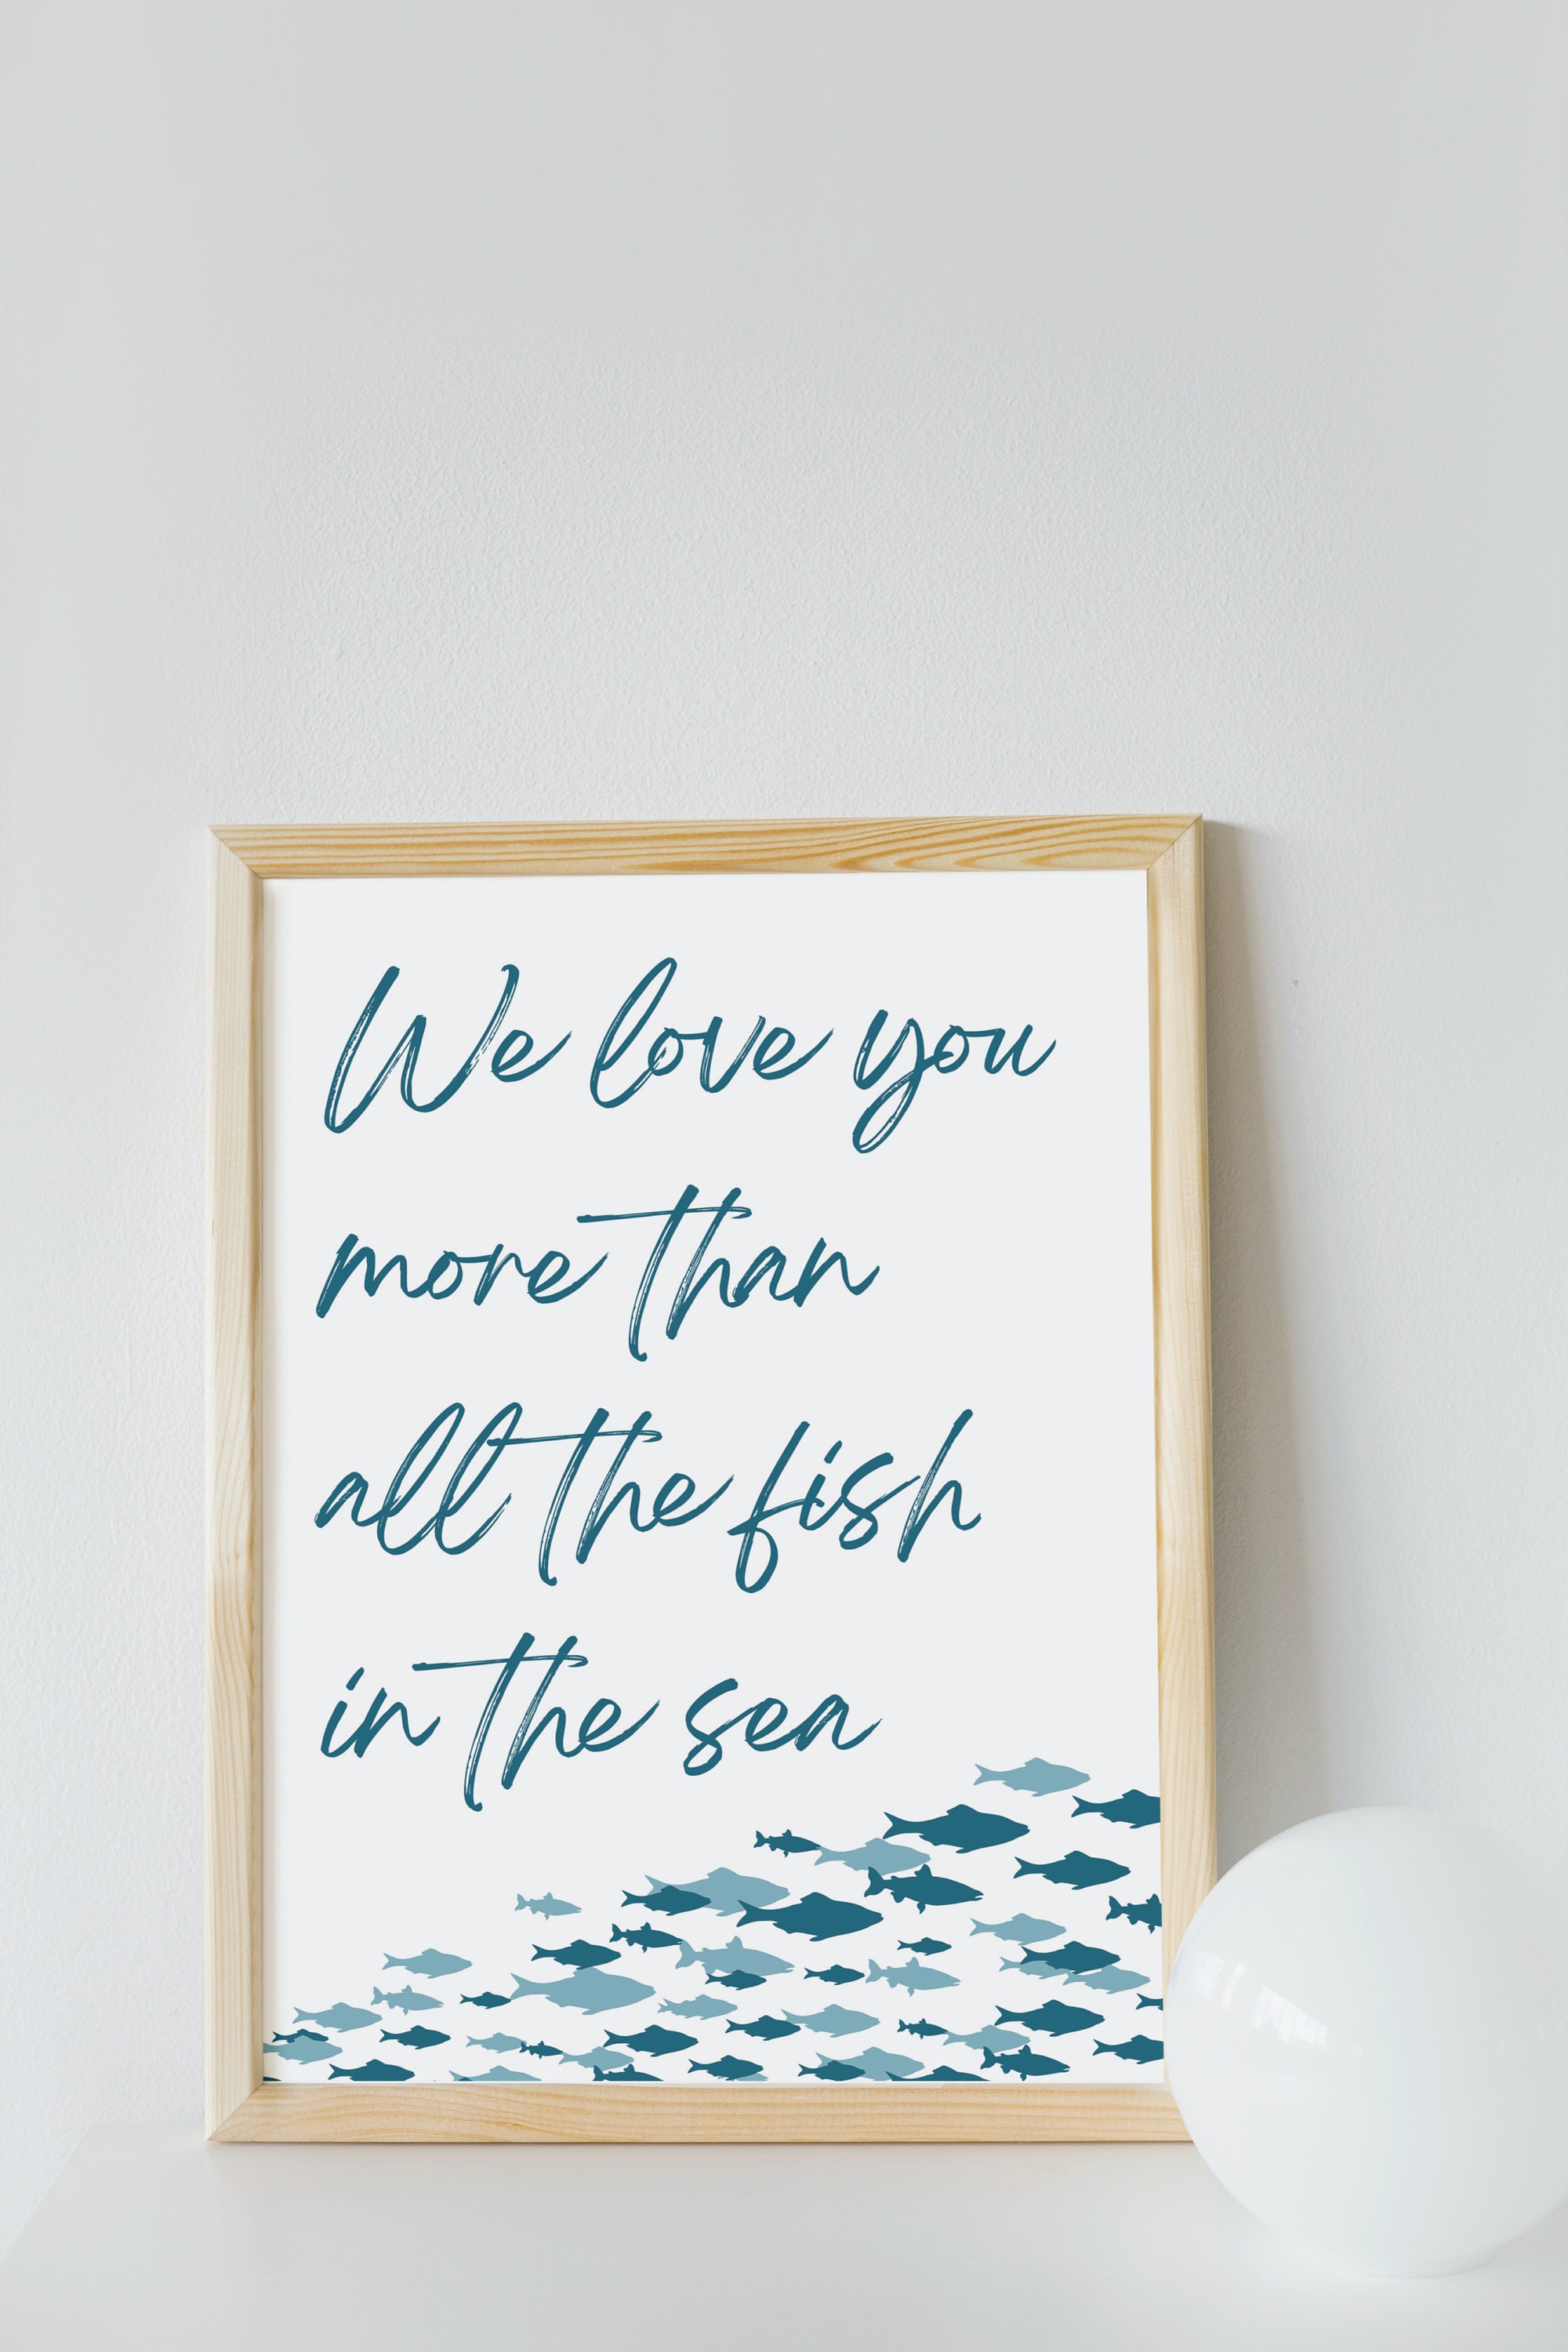 We love you
more than
all the fish
in the sea